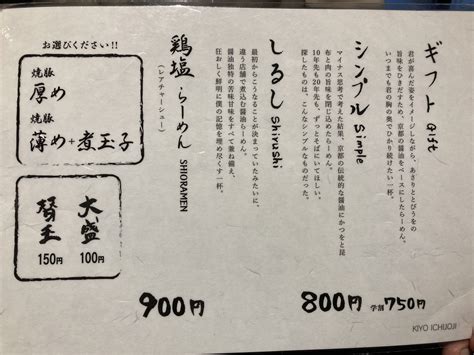 ギフト Gift
君が喜んだ姿をイメージしながら、あさりととびうをの
旨味をひきだすため、京都の醤油をベースにしたらーめん。
いつまでも君の胸の奥でひかり続けたい一杯。
シンプル Simple
マイナス思考で考えた結果、京都の伝統的な醤油にかつをと昆
布と肉の旨味を閉じ込めたらーめん。
10年先も20年先も、ずっとそばにいてほしい。
探したものは、こんなシンプルなものだった。
800円 学割 750円
しるし Shirushi
最初からこうなることが決まっていたみたいに、
違う店舗で煮込む醤油らーめん。
醤油独特の苦味甘味をすべて兼ね備え、
狂おしく鮮明に僕の記憶を埋め尽くす一杯。
鶏塩らーめん SHIORAMEN
(レアチャーシュー)
900円
お選びください!!
焼豚
厚め
焼豚
薄め+煮玉子
大盛
100円
替玉
150円
KIYO ICHIJOJI